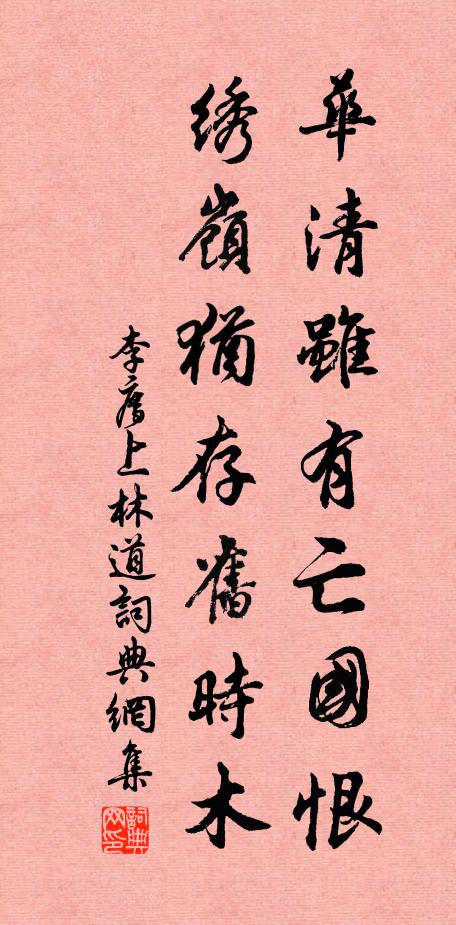 華清雖有亡國恨
綉嶺猶存舊時木
李廌上林道詞典網集
詞典网印